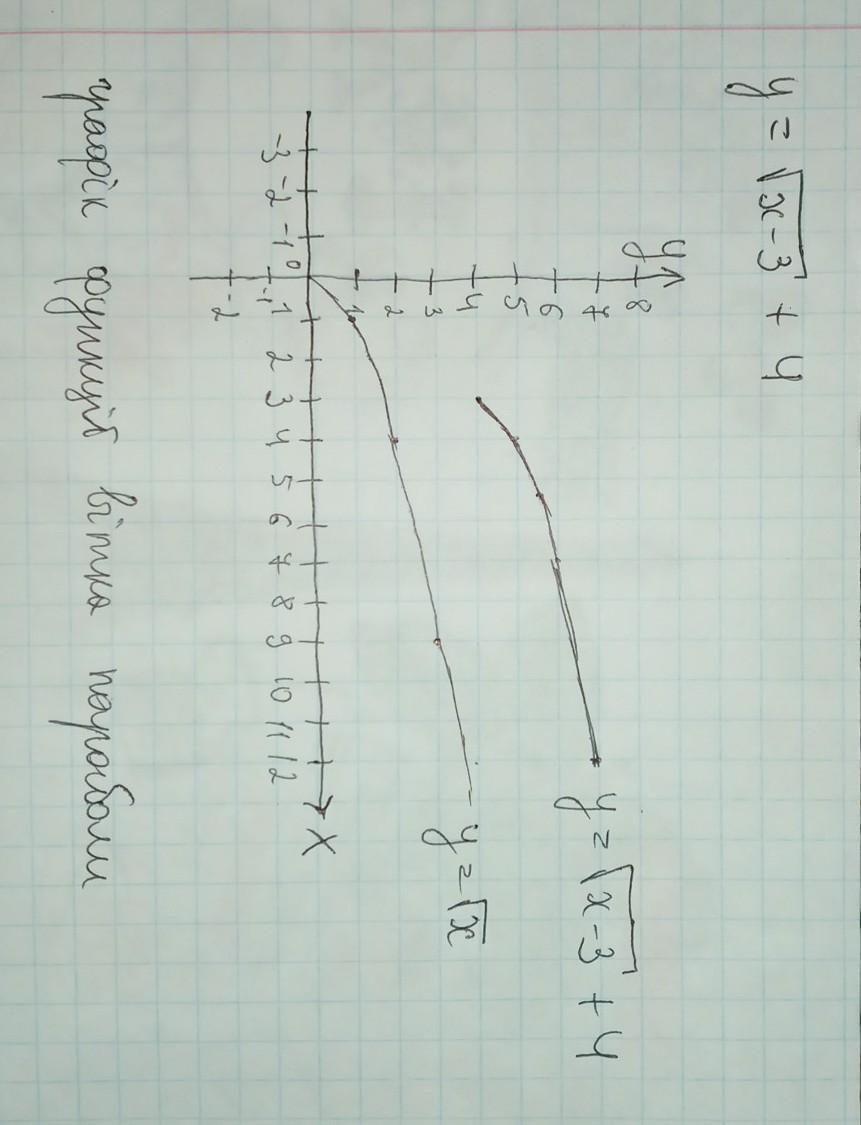 y = √x-3 + 4
y
8
7
6
5
4
3
2
1
-3 -2 -1 0 1 2 3 4 5 6 7 8 9 10 11 12
X
-1
-2
y = √x-3 + 4
y = √x
графік функції вітка параболи